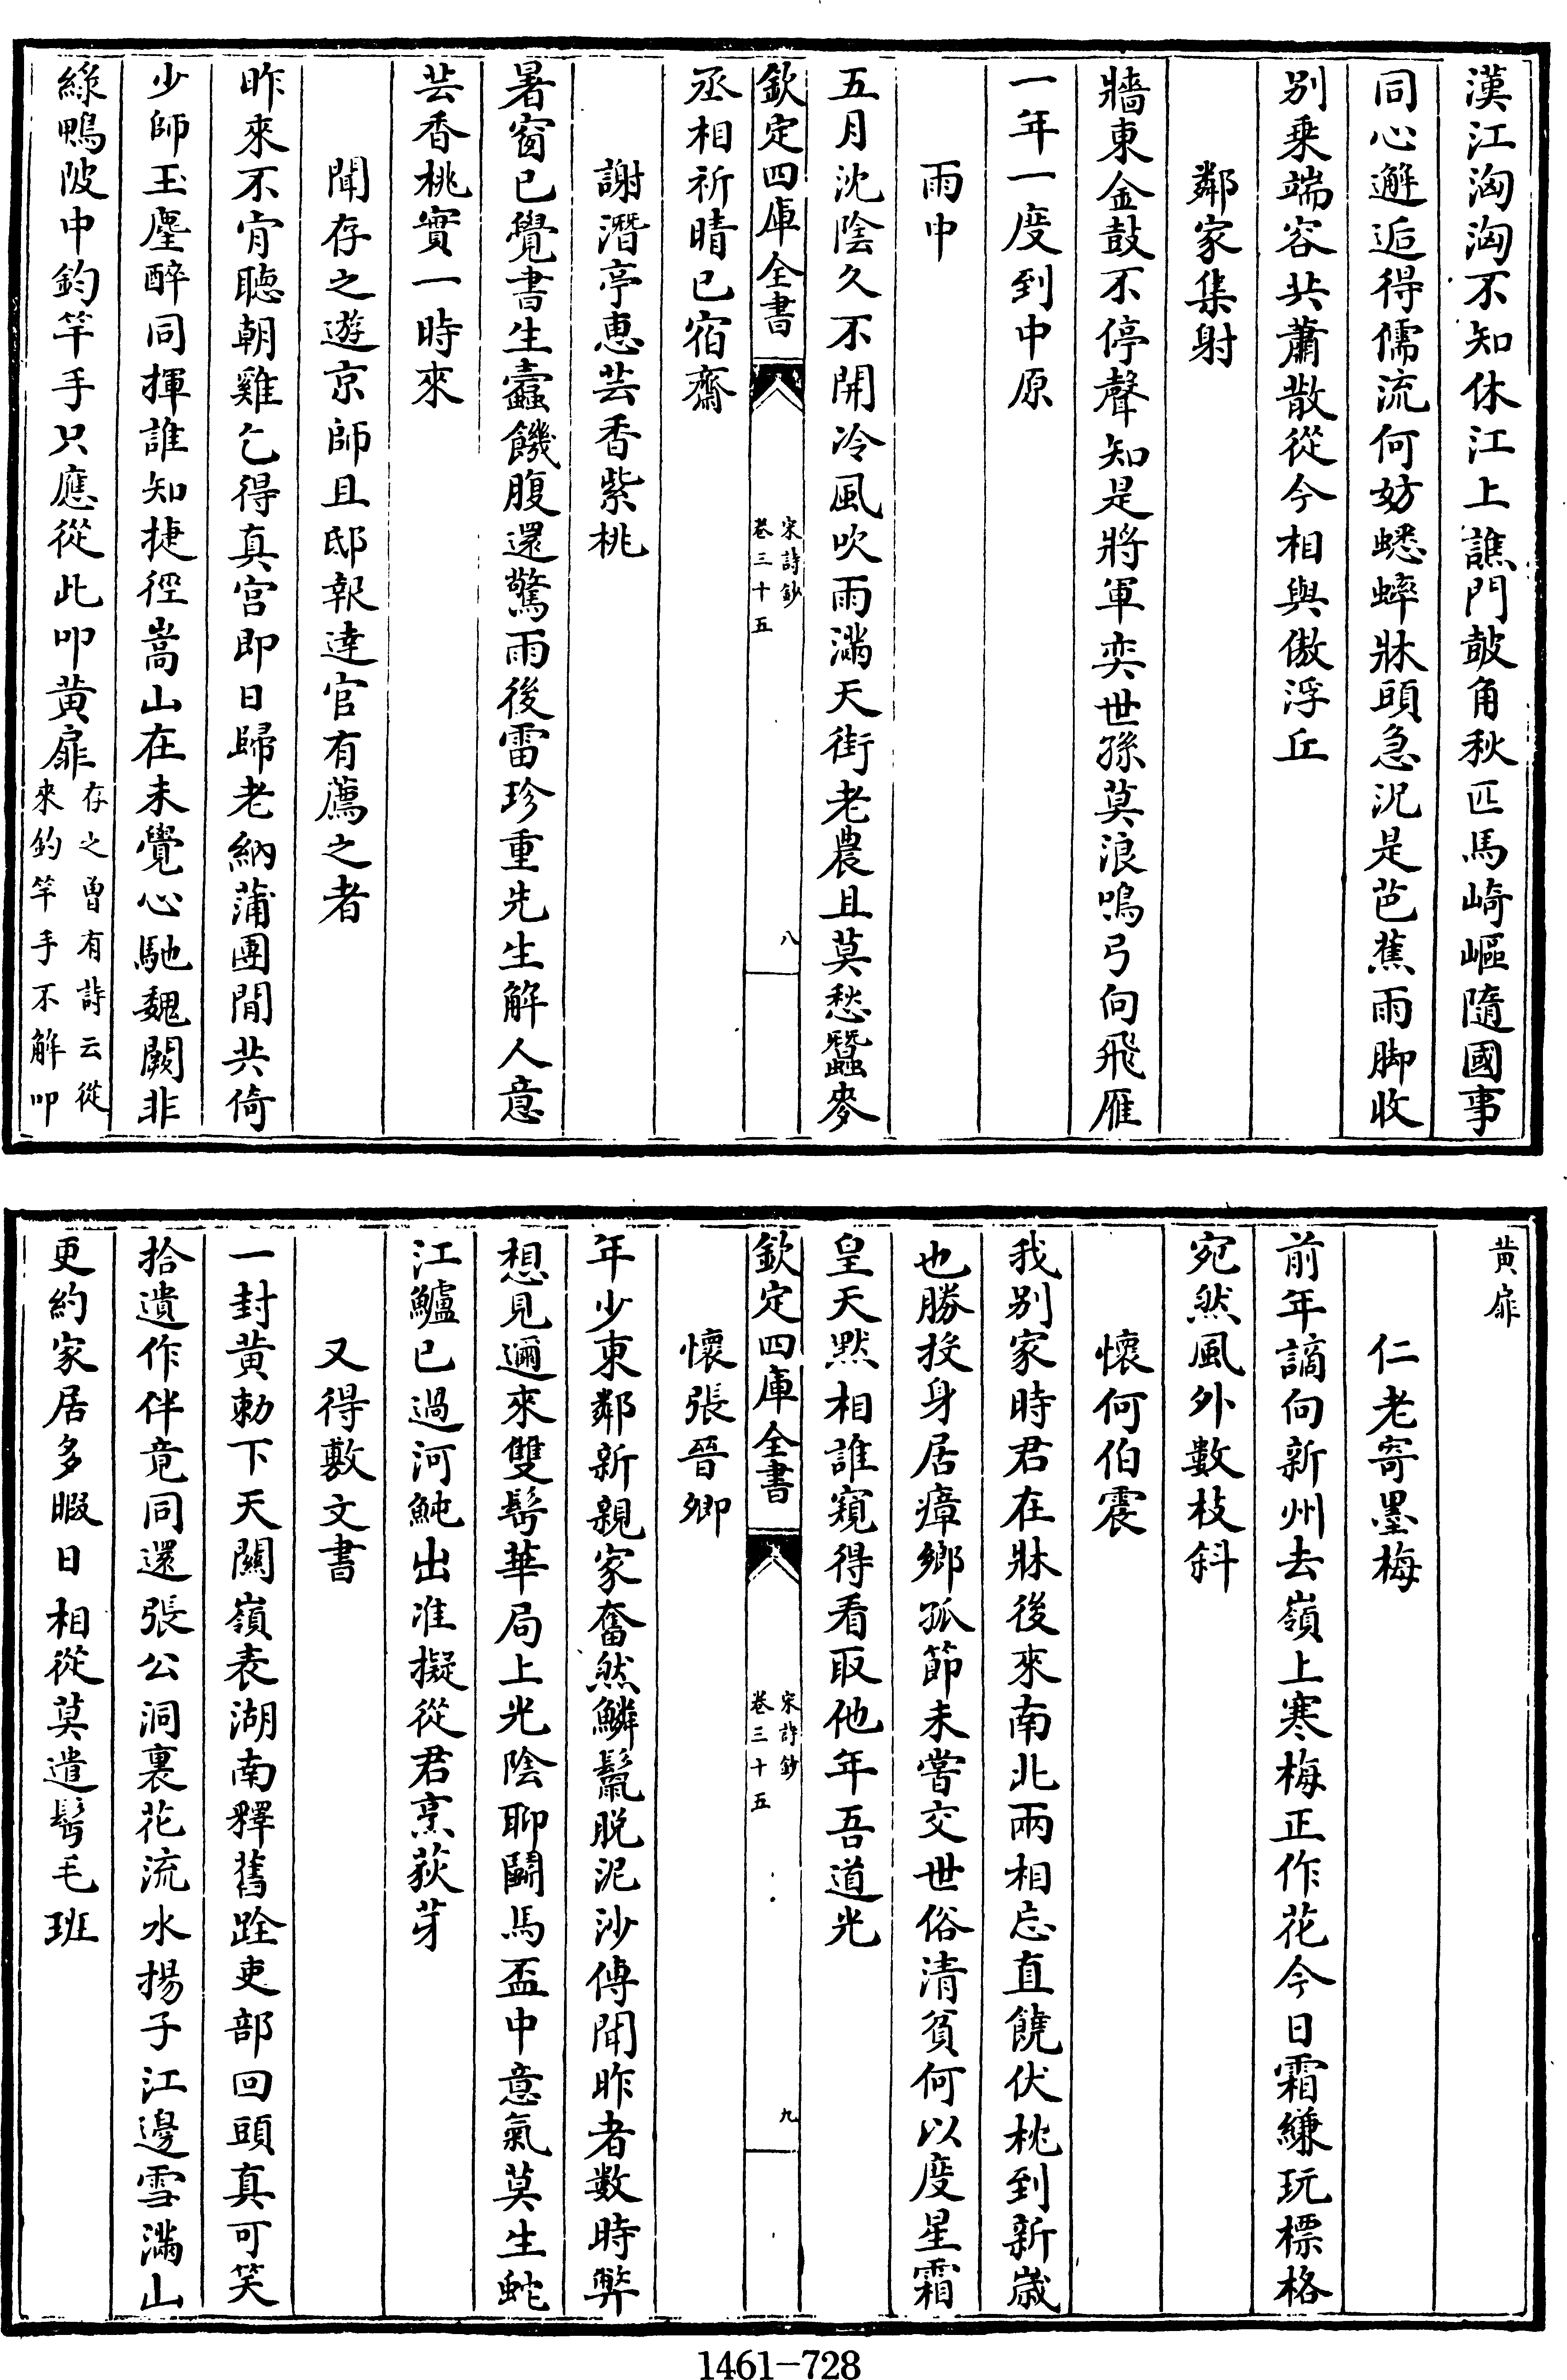 漢江洶洶不知休江上譙門鼓角秋匹馬崎嶇隨國事
同心邂逅得儒流何妨蟋蟀牀頭急況是芭蕉雨脚收
别乗端容共蕭散從今相與傲浮丘
鄰家集射
牆東金鼓不停聲知是將軍奕世孫莫浪鳴弓向飛雁
一年一度到中原
雨中
五月沈陰久不開冷風吹雨滿天街老農且莫愁蠶麥
欽定四庫全書
宋詩鈔
卷三十五
八
丞相祈晴已宿齋
謝潛亭惠芸香紫桃
暑窗已覺書生蠹饑腹還驚雨後雷珍重先生解人意
芸香桃實一時來
聞存之遊京師且邸報達官有薦之者
昨來不肯聴朝雞乞得真宫即日歸老納蒲團閒共倚
少師玉麈醉同揮誰知捷徑嵩山在未覺心馳魏闕非
綠鴨陂中釣竿手只應從此叩黄扉
存之曽有詩云從
來釣竿手不解叩
黄扉
仁老寄墨梅
前年謫向新州去嶺上寒梅正作花今日霜縑玩標格
宛然風外數枝斜
懷何伯震
我别家時君在牀後來南北兩相忘直饒伏枕到新嵗
也勝投身居瘴鄉孤節未嘗交世俗清貧何以度星霜
皇天黙相誰窺得看取他年吾道光
欽定四庫全書
宋詩鈔
卷三十五
九
懷張晉卿
年少東鄰新親家奮然鱗鬛脱泥沙傅聞昨者數時弊
想見邇來雙鬂華局上光陰聊鬬馬盃中意氣莫生蛇
江鱸已過河魨出准擬從君烹荻芽
又得敷文書
一封黄勅下天闗嶺表湖南釋舊跧吏部回頭真可笑
拾遺作伴竟同還張公洞裏花流水揚子江邊雪滿山
更約家居多暇日相從莫遣鬂毛班
1461-728